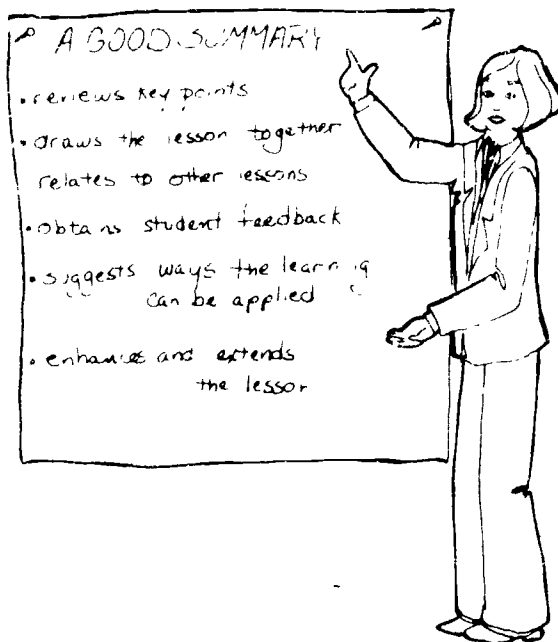 A GOOD SUMMARY
• reviews key points
• draws the lesson together
relates to other lessons
• obtains student feedback
• suggests ways the learning
can be applied
• enhances and extends
the lesson